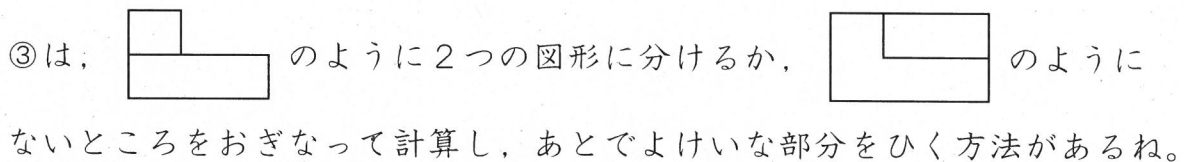 ③は，のように2つの図形に分けるか，のように
ないところをおぎなって計算し，あとでよけいな部分をひく方法があるね。